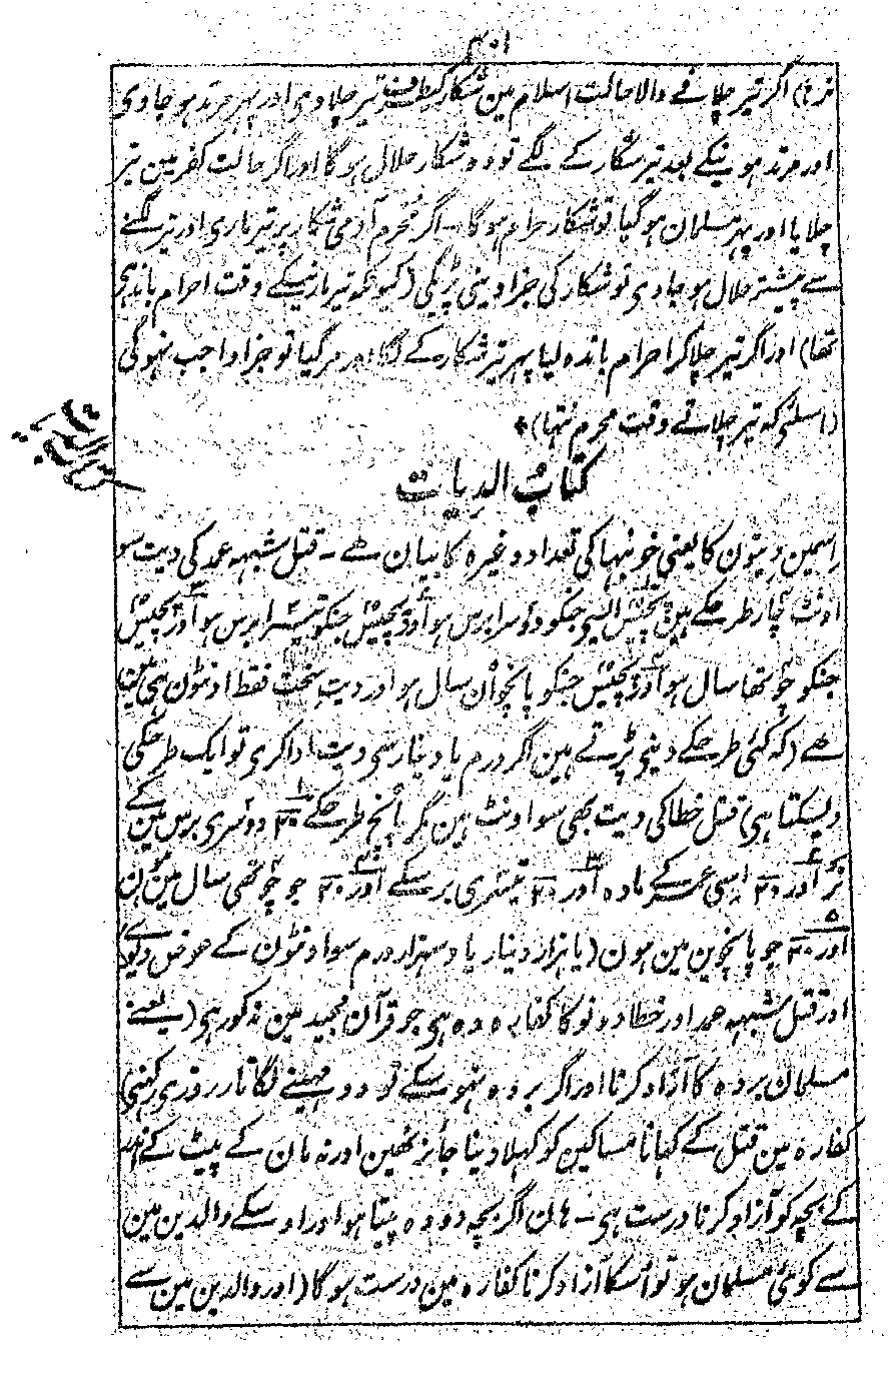 ۴۰۱
اگر تیر چلانے والا حالت اسلام مین شکار کیطرف تیر چلاوی اور پہر مرتد ہو جاوی
اور مرتد ہونیکے بعد تیر شکار کے لگے تو وہ شکار حلال ہوگا اور اگر حالت کفر مین تیر
چلایا اور پہر مسلمان ہوگیا تو شکار حرام ہوگا ۔ اگر مُحرم آدمی شکار پر تیر ماری اور تیر لگنے
سے پیشتر حلال ہو جاوی تو شکار کی جزا دینی پڑیگی (کیونکہ تیر مارنیکے وقت احرام باندہی
تھا) اور اگر تیر چلا کر احرام باندہ لیا پہر تیر شکار کے لگا اور مر گیا تو جزا واجب نہوگی
(اسلئی کہ تیر چلاتے وقت محرم نتہا)*
کتابُ الدیات
اسمین دیتون کا یعنی خونبہا کی تعداد وغیرہ کا بیان ہے ۔ قتل شبہہ عمد کی دیت سو
اونٹ چار طرحکے ہین پچیس ایسی جنکو دوسرا برس ہو اور پچیس جنکو تیسرا برس ہو اور پچیس
جنکو چوتھا سال ہو اور پچیس جنکو پانچوان سال ہو اور دیت سخت فقط اونٹون ہی مین
ہے (کہ کئی طرحکے دینی پڑتے ہین اگر درم یا دینار سی دیت ادا کری تو ایک طرحکی
دیسکتا ہی) قتل خطا کی دیت بھی سو اونٹ ہین مگر پانچ طرحکے ۲۰ دوسری برس مین کے
نر اور ۲۰ ایسی عمر کے مادہ اور ۲۰ تیسری برسکے اور ۲۰ جو چوتھی سال مین ہون
اور ۲۰ جو پانچوین مین ہون (یا ہزار دینار یا دسہزار درم سو اونٹون کے عوض دیوے)
اور قتل شبہہ عمد اور خطا دونو کا کفارہ وہ ہی جو قرآن مجید مین مذکور ہی (یعنے
مسلمان بردہ کا آزاد کرنا اور اگر بردہ نہو سکے تو دو مہینے لگاتار روزی رکہنی)
کفارہ مین قتل کے کہانا مساکین کو کہلا دینا جائز نہین اور نہ مان کے پیٹ کے اندر
کے بچہ کو آزاد کرنا درست ہی ۔ ہان اگر بچہ دودہ پیتا ہو اور اوسکے والدین مین
سے کوئی مسلمان ہو تو اُسکا آزاد کرنا کفارہ مین درست ہوگا (اور والدین مین سے